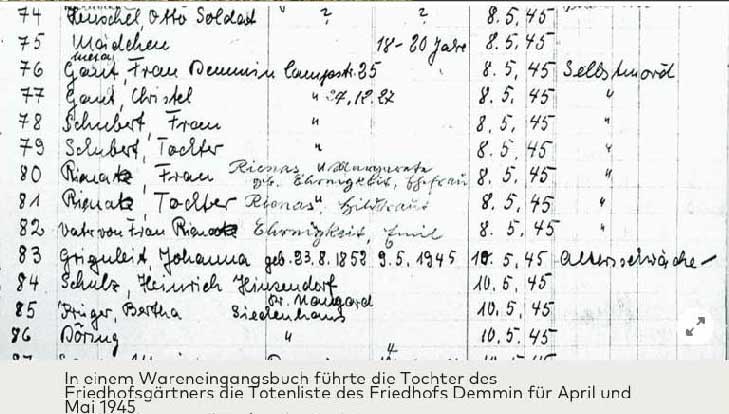 74 Henschel, Otto Soldat ? ? 8.5.45
75 Mädchen 18-20 Jahre 8.5.45
76 Gaut, Frau Demmin 25 8.5.45 Selbstmord
77 Gaut, Christel " 27.12.27 8.5.45 "
78 Schubert, Frau " 8.5.45 "
79 Schubert, Tochter " 8.5.45 "
80 Frau Rienas Margarete geb. Ehrnigkeit, Ehefrau 8.5.45 "
81 Tochter Rienas 8.5.45 "
82 Vater von Frau Ehrnigkeit, Emil 8.5.45 "
83 Griguleit, Johanna geb. 23.8.1852 9.5.1945 10.5.45 Altersschwäche
84 Schulz, Heinrich Hinsendorf Kr. Naugard 10.5.45
85 Krüger, Bertha Siechenhaus 10.5.45
86 Döring " 10.5.45
In einem Wareneingangsbuch führte die Tochter des
Friedhofsgärtners die Totenliste des Friedhofs Demmin für April und
Mai 1945